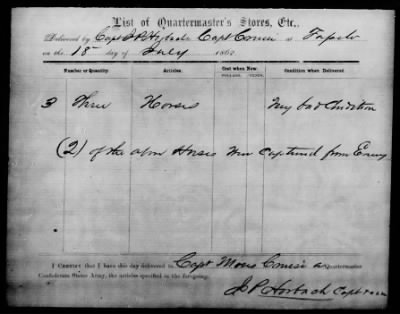 List of Quartermaster's Stores, Etc.,
Delivered by Capt J P Horbach Capt Cousi at Tupelo
on the 18 day of July 1862
Number or Quantity. Articles. Cost when New. Condition when Delivered
DOLLARS. CENTS.
3 Three Horses Very bad Condition
(2) of the above Horses were Captured from Enemy
I CERTIFY that I have this day delivered to Capt Cousi a Quartermaster
Confederate States Army, the articles specified in the foregoing.
J P Horbach Capt